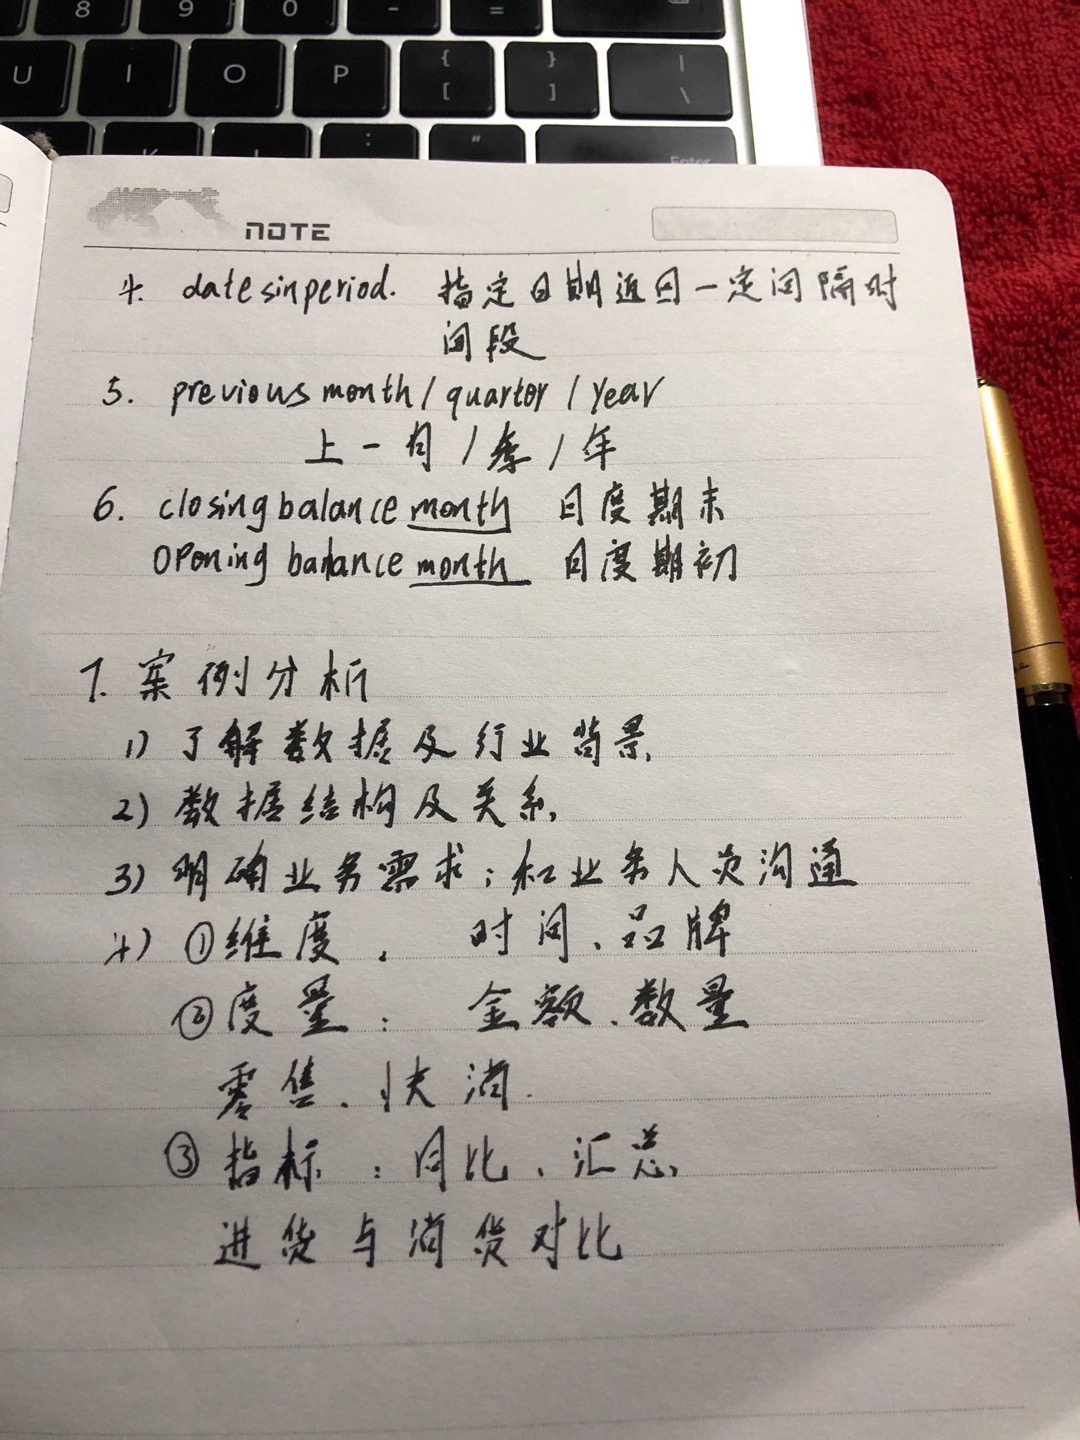 8 9 0 - =
U I O P { [ } ] | \
K L : " Enter
NOTE
4. datesinperiod. 指定日期返回一定间隔时
间段
5. previous month / quarter / year
上一月 / 季 / 年
6. closingbalance month 月度期末
Opening balance month 月度期初
7. 案例分析
1) 了解数据及行业背景.
2) 数据结构及关系.
3) 明确业务需求; 和业务人员沟通
4) ①维度: 时间、品牌
②度量: 金额、数量
零售、快消.
③指标: 同比、汇总.
进货与消货对比